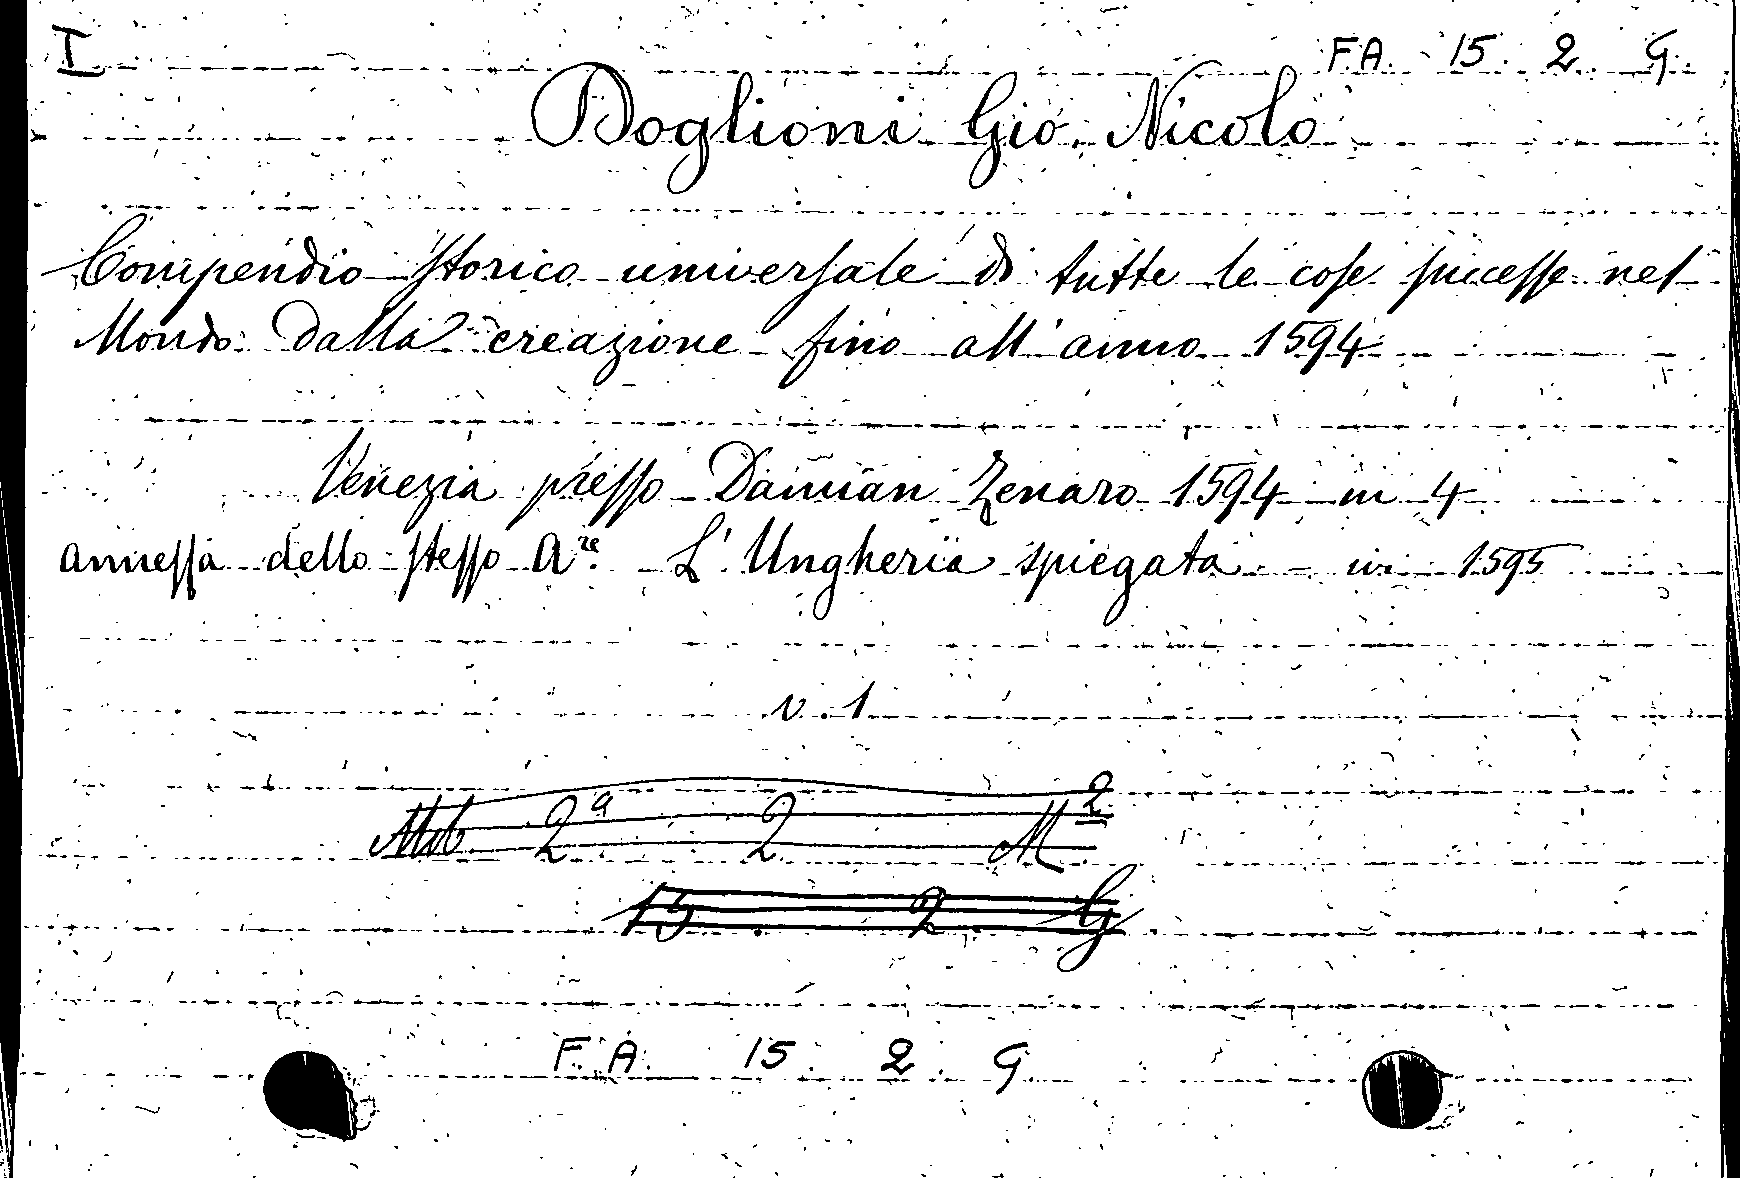 I F.A. 15. 2. G.
Doglioni Gio. Nicolo
Compendio storico universale di tutte le cose successe nel
Mondo dalla creazione fino all'anno 1594
Venezia presso Damian Zenaro 1594 in 4
annessa dello stesso A.re L'Ungheria spiegata - ivi 1595
v. 1
2a 2 M2
15. 2. G
F.A. 15. 2. G